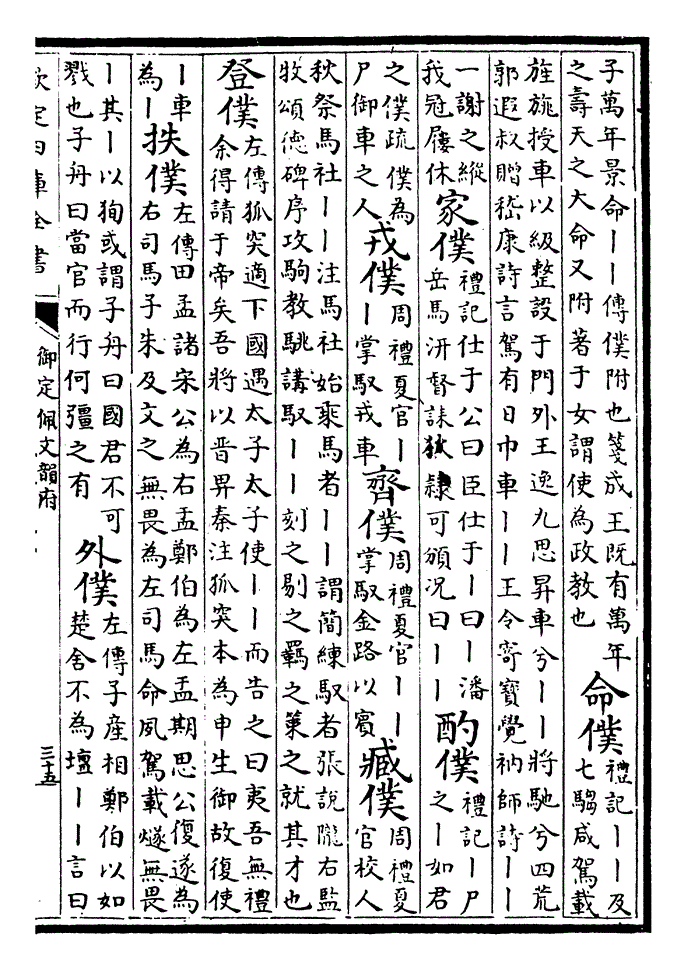 子萬年景命丨丨傳僕附也箋成王既有萬年
之壽天之大命又附著于女謂使為政教也
命僕
禮記丨丨及
七騶咸駕載
旌旐授車以級整設于門外王逸九思昇車兮丨丨將馳兮四荒
郭遐叔贈嵇康詩言駕有日巾車丨丨王令寄寶覺衲師詩丨丨
一謝之縱
我冠屨休
家僕
禮記仕于公曰臣仕于丨曰丨潘
岳馬汧督誄狄隸可頒况曰丨丨
酌僕
禮記丨尸
之丨如君
之僕疏僕為
尸御車之人
戎僕
周禮夏官丨
丨掌馭戎車
齊僕
周禮夏官丨丨
掌馭金路以賓
臧僕
周禮夏
官校人
秋祭馬社丨丨注馬社始乘馬者丨丨謂簡練馭者張說隴右監
牧頌德碑序攻駒教駣講馭丨丨刻之剔之羈之策之就其才也
登僕
左傳狐突適下國遇太子太子使丨丨而告之曰夷吾無禮
余得請于帝矣吾將以晉畀秦注狐突本為申生御故復使
丨車
為丨
抶僕
左傳田孟諸宋公為右盂鄭伯為左盂期思公復遂為
右司馬子朱及文之無畏為左司馬命夙駕載燧無畏
丨其丨以狥或謂子舟曰國君不可
戮也子舟曰當官而行何彊之有
外僕
左傳子產相鄭伯以如
楚舍不為壇丨丨言曰
欽定四庫全書
御定佩文韻府
三十五